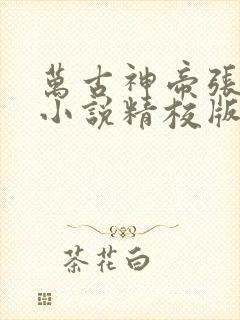 萬古神帝張
小說精校版
茶花白